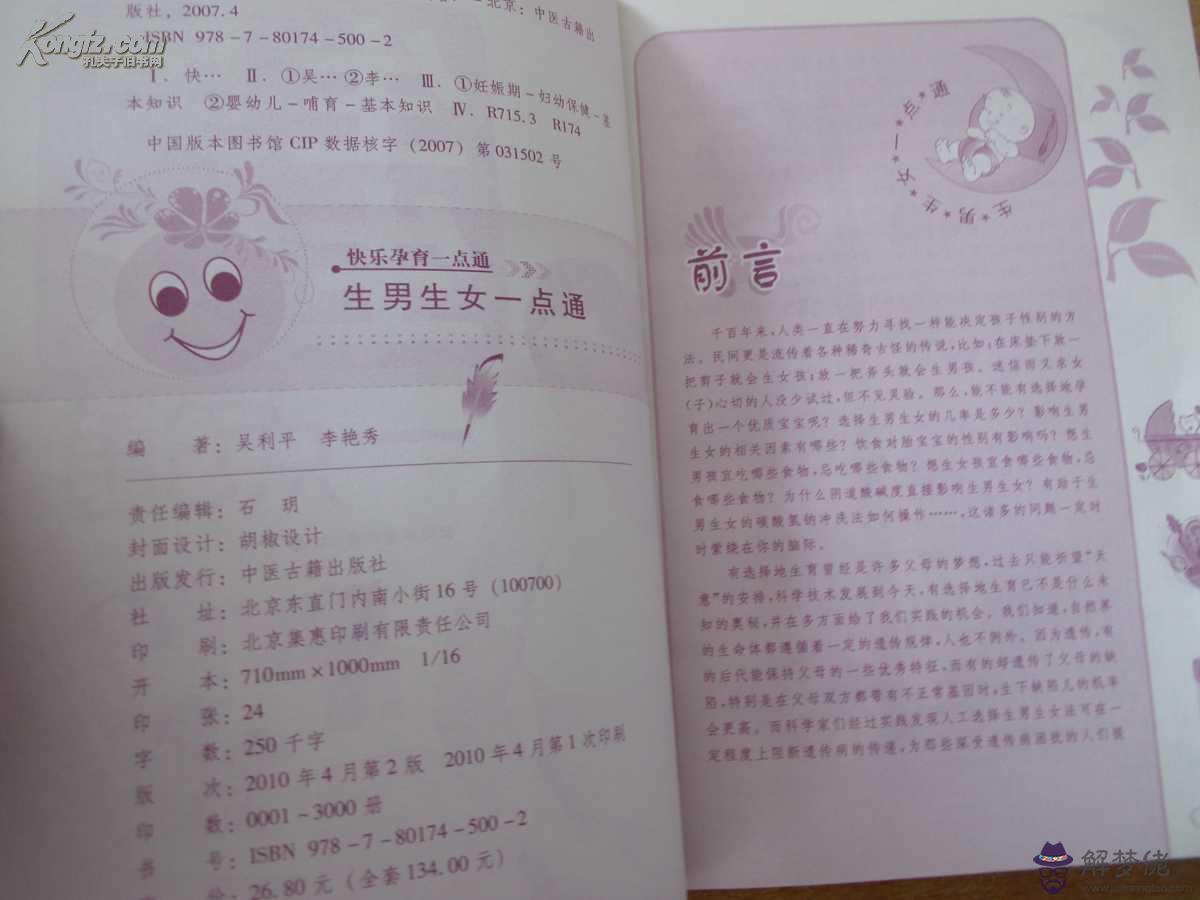 北京：中医古籍出
版社，2007.4
ISBN 978-7-80174-500-2
Ⅰ．快… Ⅱ．①吴…②李… Ⅲ．①妊娠期-妇幼保健-基
本知识 ②婴幼儿-哺育-基本知识 Ⅳ．R715.3 R174
中国版本图书馆CIP数据核字(2007)第031502号
Kongfz.com
孔夫子旧书网
快乐孕育一点通
生男生女一点通
编 著：吴利平 李艳秀
责任编辑：石 玥
封面设计：胡椒设计
出版发行：中医古籍出版社
社 址：北京东直门内南小街16号(100700)
印 刷：北京集惠印刷有限责任公司
开 本：710mm×1000mm 1/16
印 张：24
字 数：250千字
版 次：2010年4月第2版 2010年4月第1次印刷
印 数：0001~3000册
书 号：ISBN 978-7-80174-500-2
价：26.80元(全套134.00元)
生*男*生*女*一*点*通
前言
千百年来，人类一直在努力寻找一种能决定孩子性别的方
法。民间更是流传着各种稀奇古怪的传说，比如：在床垫下放一
把剪子就会生女孩；放一把斧头就会生男孩。迷信而又求女
(子)心切的人没少试过，但不见灵验。那么，能不能有选择地孕
育出一个优质宝宝呢？选择生男生女的几率是多少？影响生男
生女的相关因素有哪些？饮食对胎宝宝的性别有影响吗？想生
男孩宜吃哪些食物，忌吃哪些食物？想生女孩宜食哪些食物，忌
食哪些食物？为什么阴道酸碱度直接影响生男生女？有助于生
男生女的碳酸氢钠冲洗法如何操作……，这诸多的问题一定时
时萦绕在你的脑际。
有选择地生育曾经是许多父母的梦想，过去只能祈望“天
意”的安排，科学技术发展到今天，有选择地生育已不是什么未
知的奥秘，并在多方面给了我们实践的机会。我们知道，自然界
的生命体都遵循着一定的遗传规律，人也不例外。因为遗传，有
的后代能保持父母的一些优秀特征，而有的却遗传了父母的缺
陷，特别是在父母双方都带有不正常基因时，生下缺陷儿的机率
会更高。而科学家们经过实践发现人工选择生男生女法可在一
定程度上阻断遗传病的传递，为那些深受遗传病困扰的人们提
解梦佬